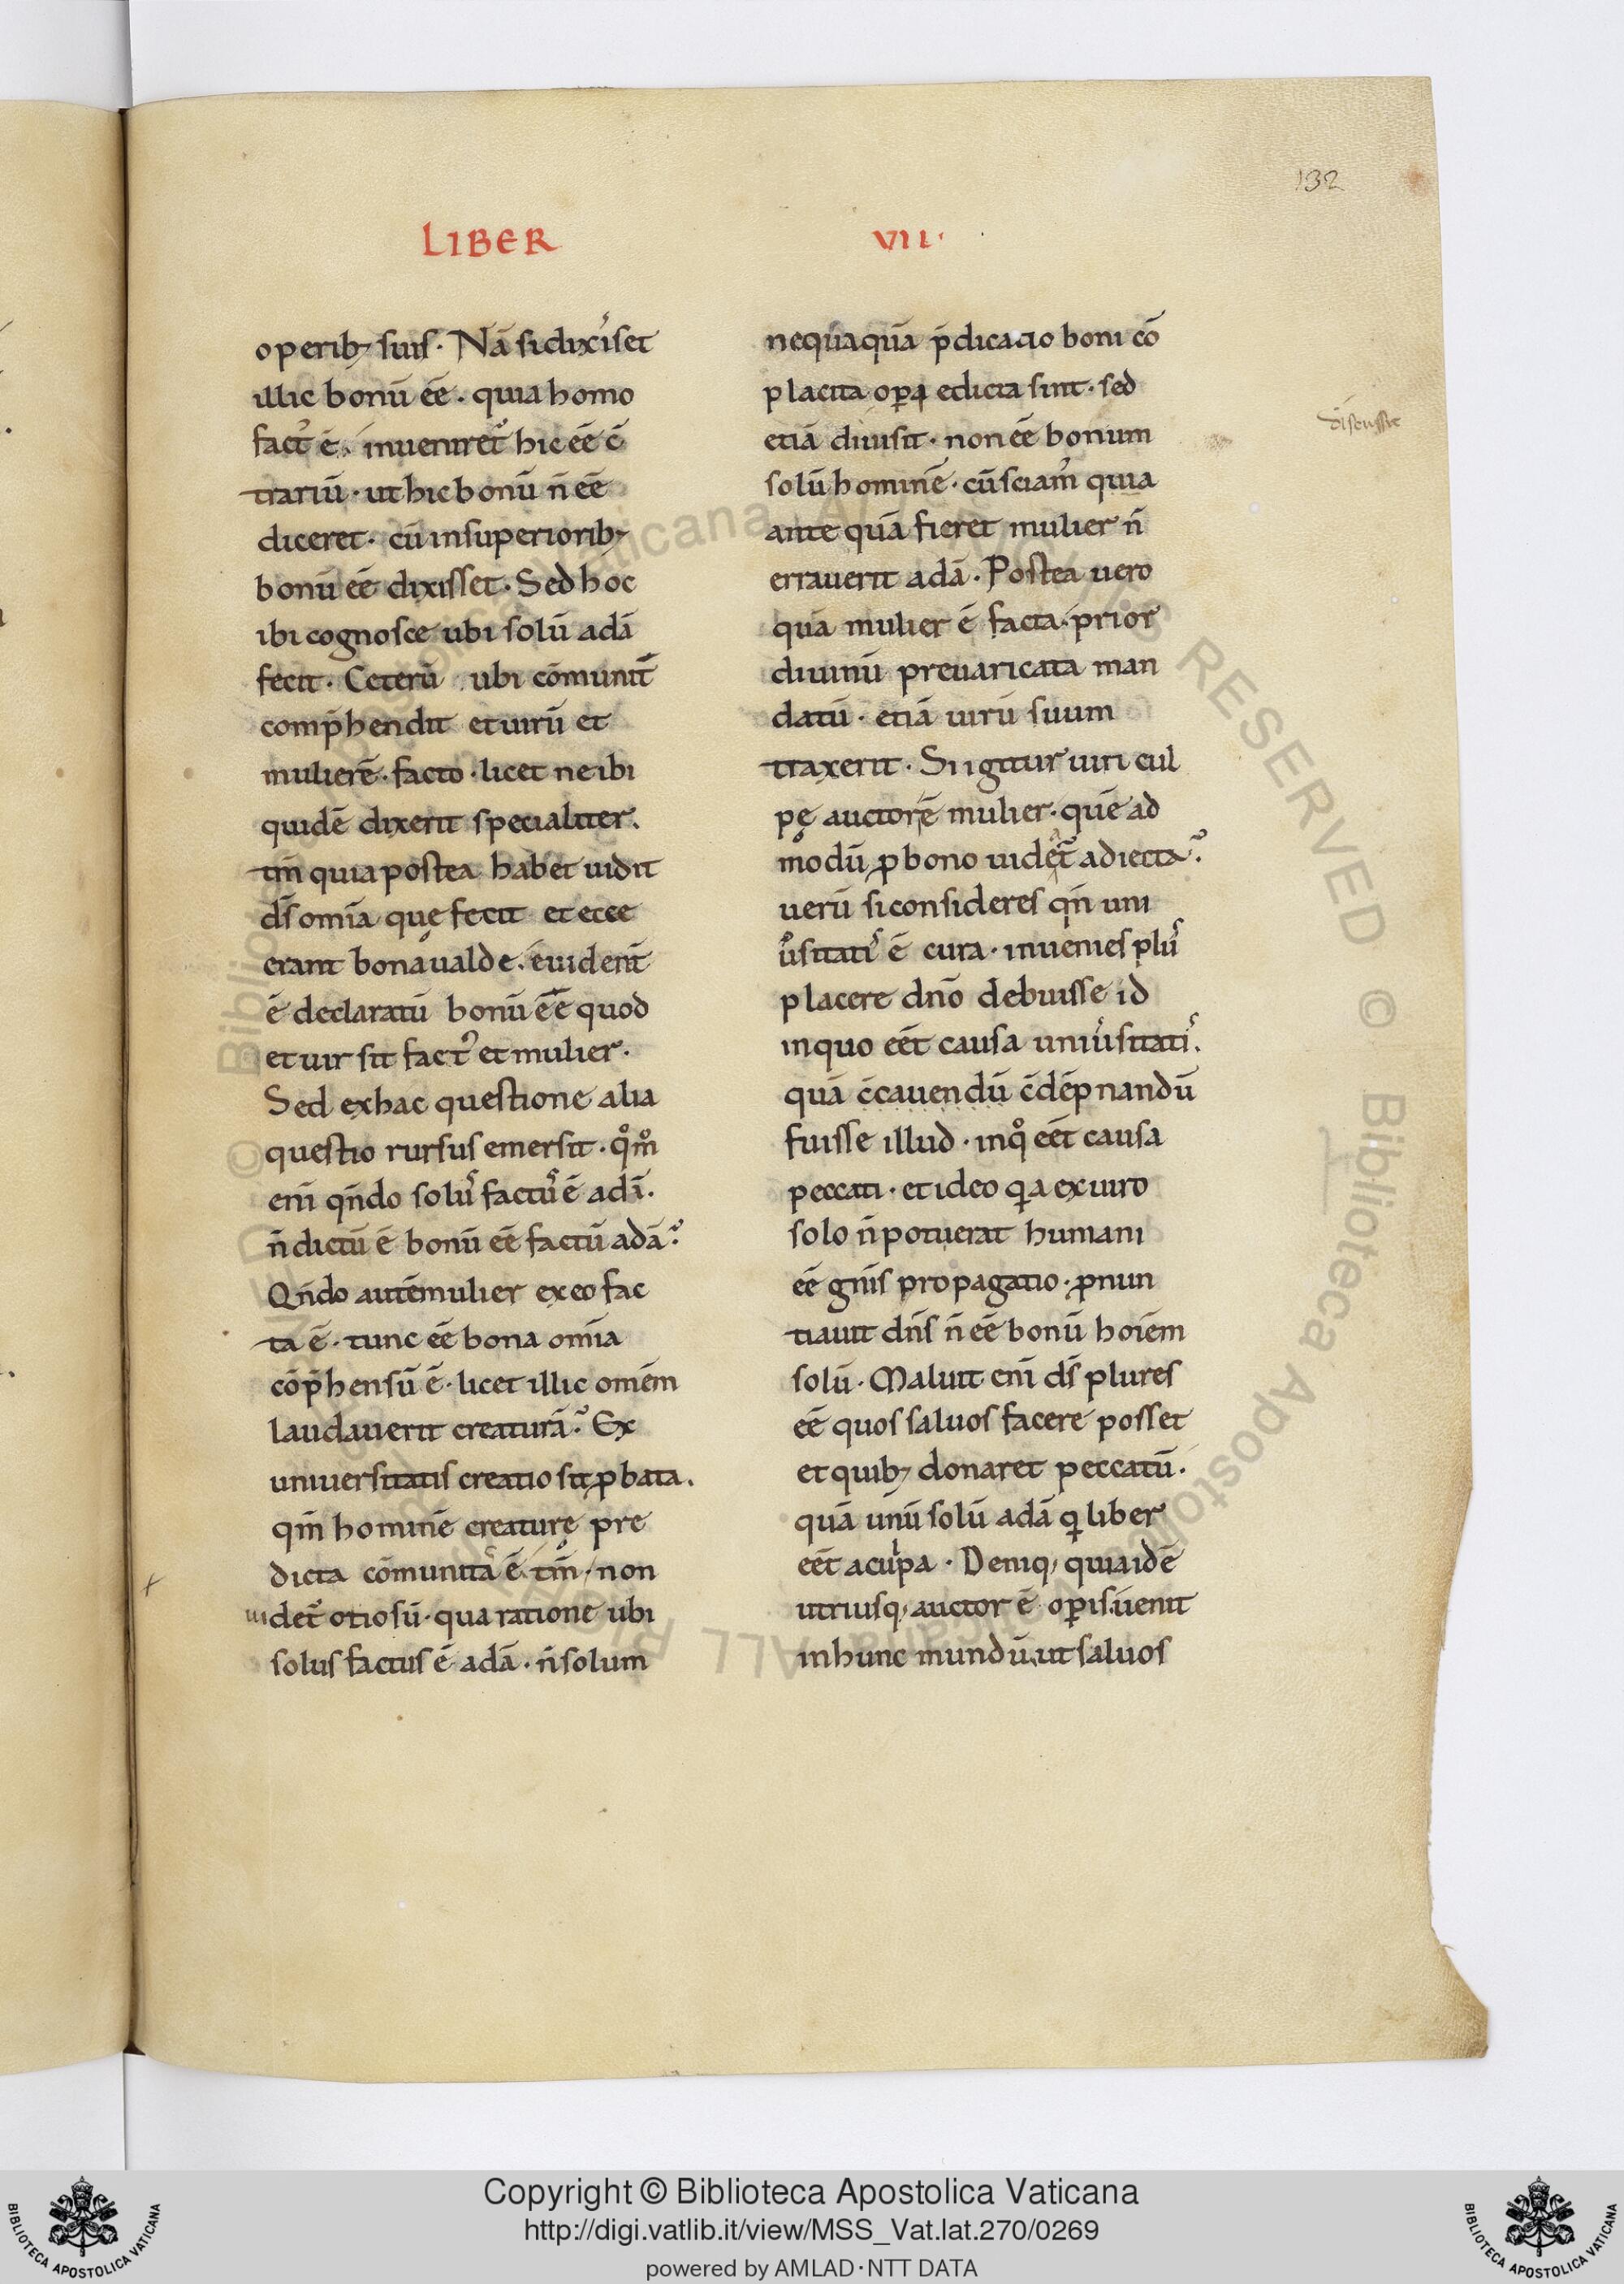 132
LIBER VII·
operibꝫ suis· Nā si dixisset
illic bonū eē· quia homo
fact᷒ ē· inueniret᷒ hic eē ↄ̄
trariū· ut hic bonū n̄ eē
diceret· cū in superioribꝫ
bonū eē dixisset· Sed hoc
ibi cognosce ubi solū adā
fecit· Ceterū ubi cōmunit̄
comp̄hendit et uirū et
mulierē· facto· licet ne ibi
quidē dixerit specialiter·
tm̄ quia postea habet uidit
ds̄ omīa que fecit et ecce
erant bona ualde· euident̄
ē declaratū bonū eē quod
et uir sit fact᷒ et mulier·
Sed ex hac questione alia
questio rursus emersit· qͦmͦ
eni᷑ qn̄do solu᷒ factu᷒ ē adā·
n̄ dictū ē bonū eē factū adā?
Qn̄do autē mulier ex eo fac
ta ē· tunc eē bona omīa
cōp̄hensū ē· licet illic omēm
laudauerit creaturā? Ex
uniuersitatis creatio sit ꝓbata·
qm̄ hominē creature pre
dicta cōmunita ē· tm̄· non
uidet᷒ otiosū· qua ratione ubi
solus factus ē adā· n̄ solum
nequaquā p̄dicatio boni cō
placita oꝑa edicta sint· sed
etiā diuisit· non eē bonum
solū hominē· cū sciam᷒ quia
ante quā fieret mulier n̄
errauerit adā· Postea uero
quā mulier ē facta· prior
diuinū preuaricata man
datū· etiā uirū suum
traxerit· Si igitur uiri cul
pę auctorē mulier· quē ad
modū ꝓ bono uidet᷒ adiecta?
uerū si consideres qn̄ uni
u᷒sitati᷒ ē cura· inuenies plu᷒
placere dn̄o debuisse id
in quo eēt causa uniu᷒sitati᷒·
quā c̄cauendū c̄dēpnandū
fuisse illud· in qͦ eēt causa
peccati· et ideo qa ex uiro
solo n̄ potuerat humani
eē gn̄is propagatio· ꝓnun
tiauit dn̄s n̄ eē bonū hoiēm
solū· Maluit eni᷑ ds̄ plures
eē quos saluos facere posset
et quibꝫ donaret peccatū·
quā unū solū adā q liber
eēt a culpa· Deniqꝫ quia idē
utriusqꝫ auctor ē oꝑis· uenit
in hunc mundū· ut saluos
Copyright © Biblioteca Apostolica Vaticana
http://digi.vatlib.it/view/MSS_Vat.lat.270/0269
powered by AMLAD·NTT DATA
BIBLIOTECA APOSTOLICA VATICANA
BIBLIOTECA APOSTOLICA VATICANA